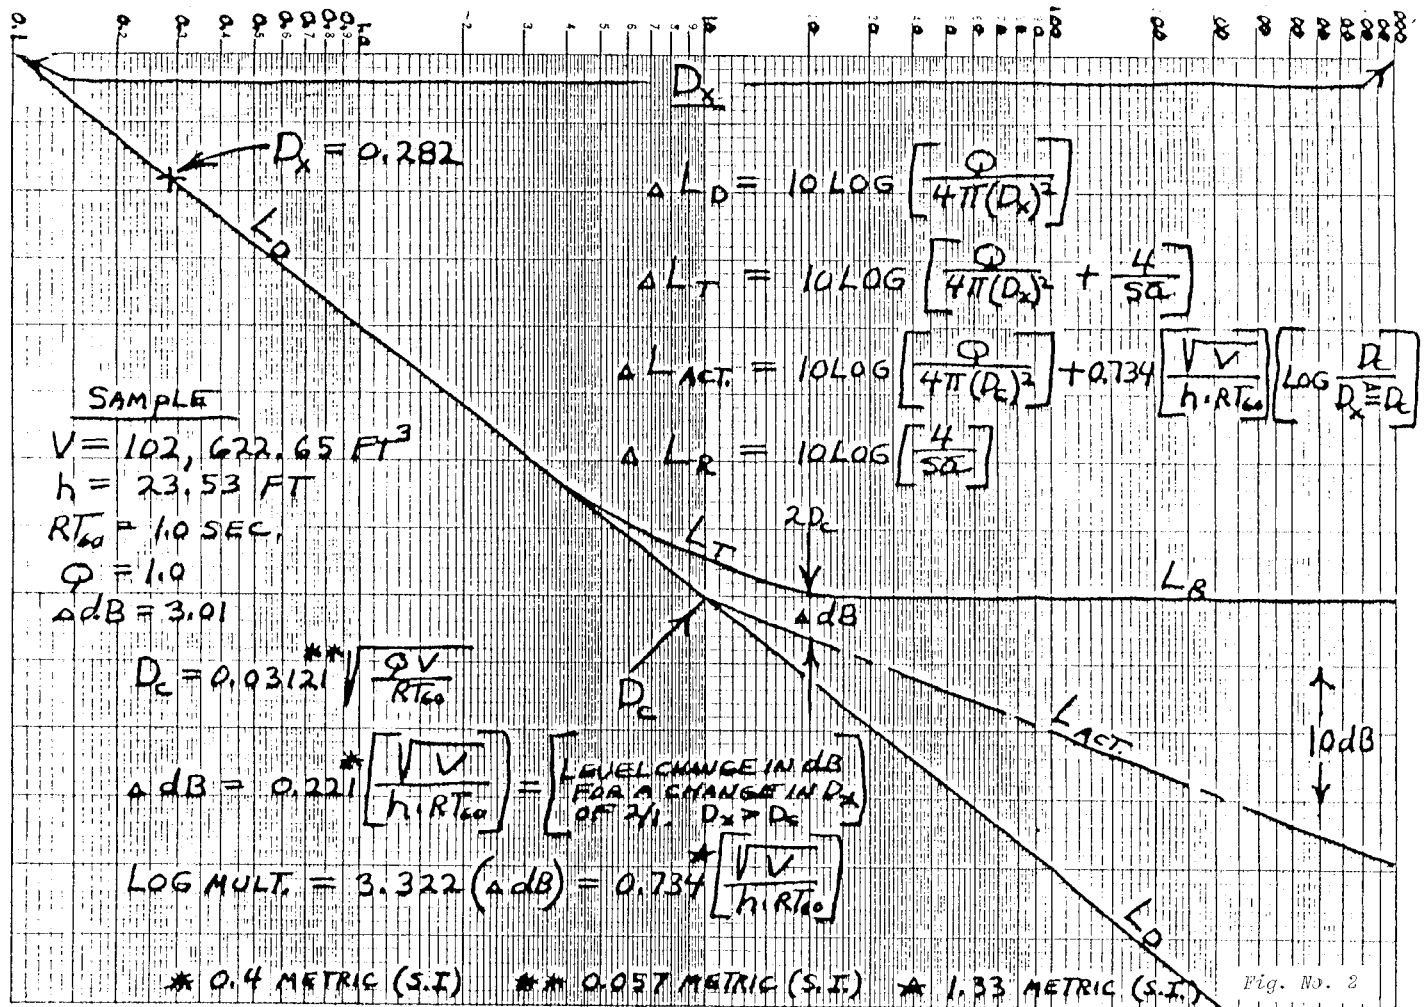 0.1 0.2 0.3 0.4 0.5 0.6 0.7 0.8 0.9 1.0 2 3 4 5 6 7 8 9 10
D_x
D_x = 0.282
L_D
Δ L_D = 10 LOG [Q / 4π(D_x)²]
Δ L_T = 10 LOG [Q / 4π(D_x)² + 4 / Sā]
Δ L_ACT. = 10 LOG [Q / 4π(D_c)²] + 0.734 [√V / h·RT₆₀] [LOG D_c / D_x ≧ D_c]
Δ L_R = 10 LOG [4 / Sā]
SAMPLE
V = 102,622.65 FT³
h = 23.53 FT
RT₆₀ = 1.0 SEC.
Q = 1.0
ΔdB = 3.01
L_T
2D_c
L_R
ΔdB
D_c = 0.03121** √(QV / RT₆₀)
D_c
L_ACT.
10dB
Δ dB = 0.221* [√V / h·RT₆₀] = [LEVEL CHANGE IN dB
FOR A CHANGE IN D_x
OF 2/1. D_x > D_c]
LOG MULT. = 3.322 (ΔdB) = 0.734★ [√V / h·RT₆₀]
L_D
* 0.4 METRIC (S.I) ** 0.057 METRIC (S.I.) ★ 1.33 METRIC (S.I.)
Fig. No. 2